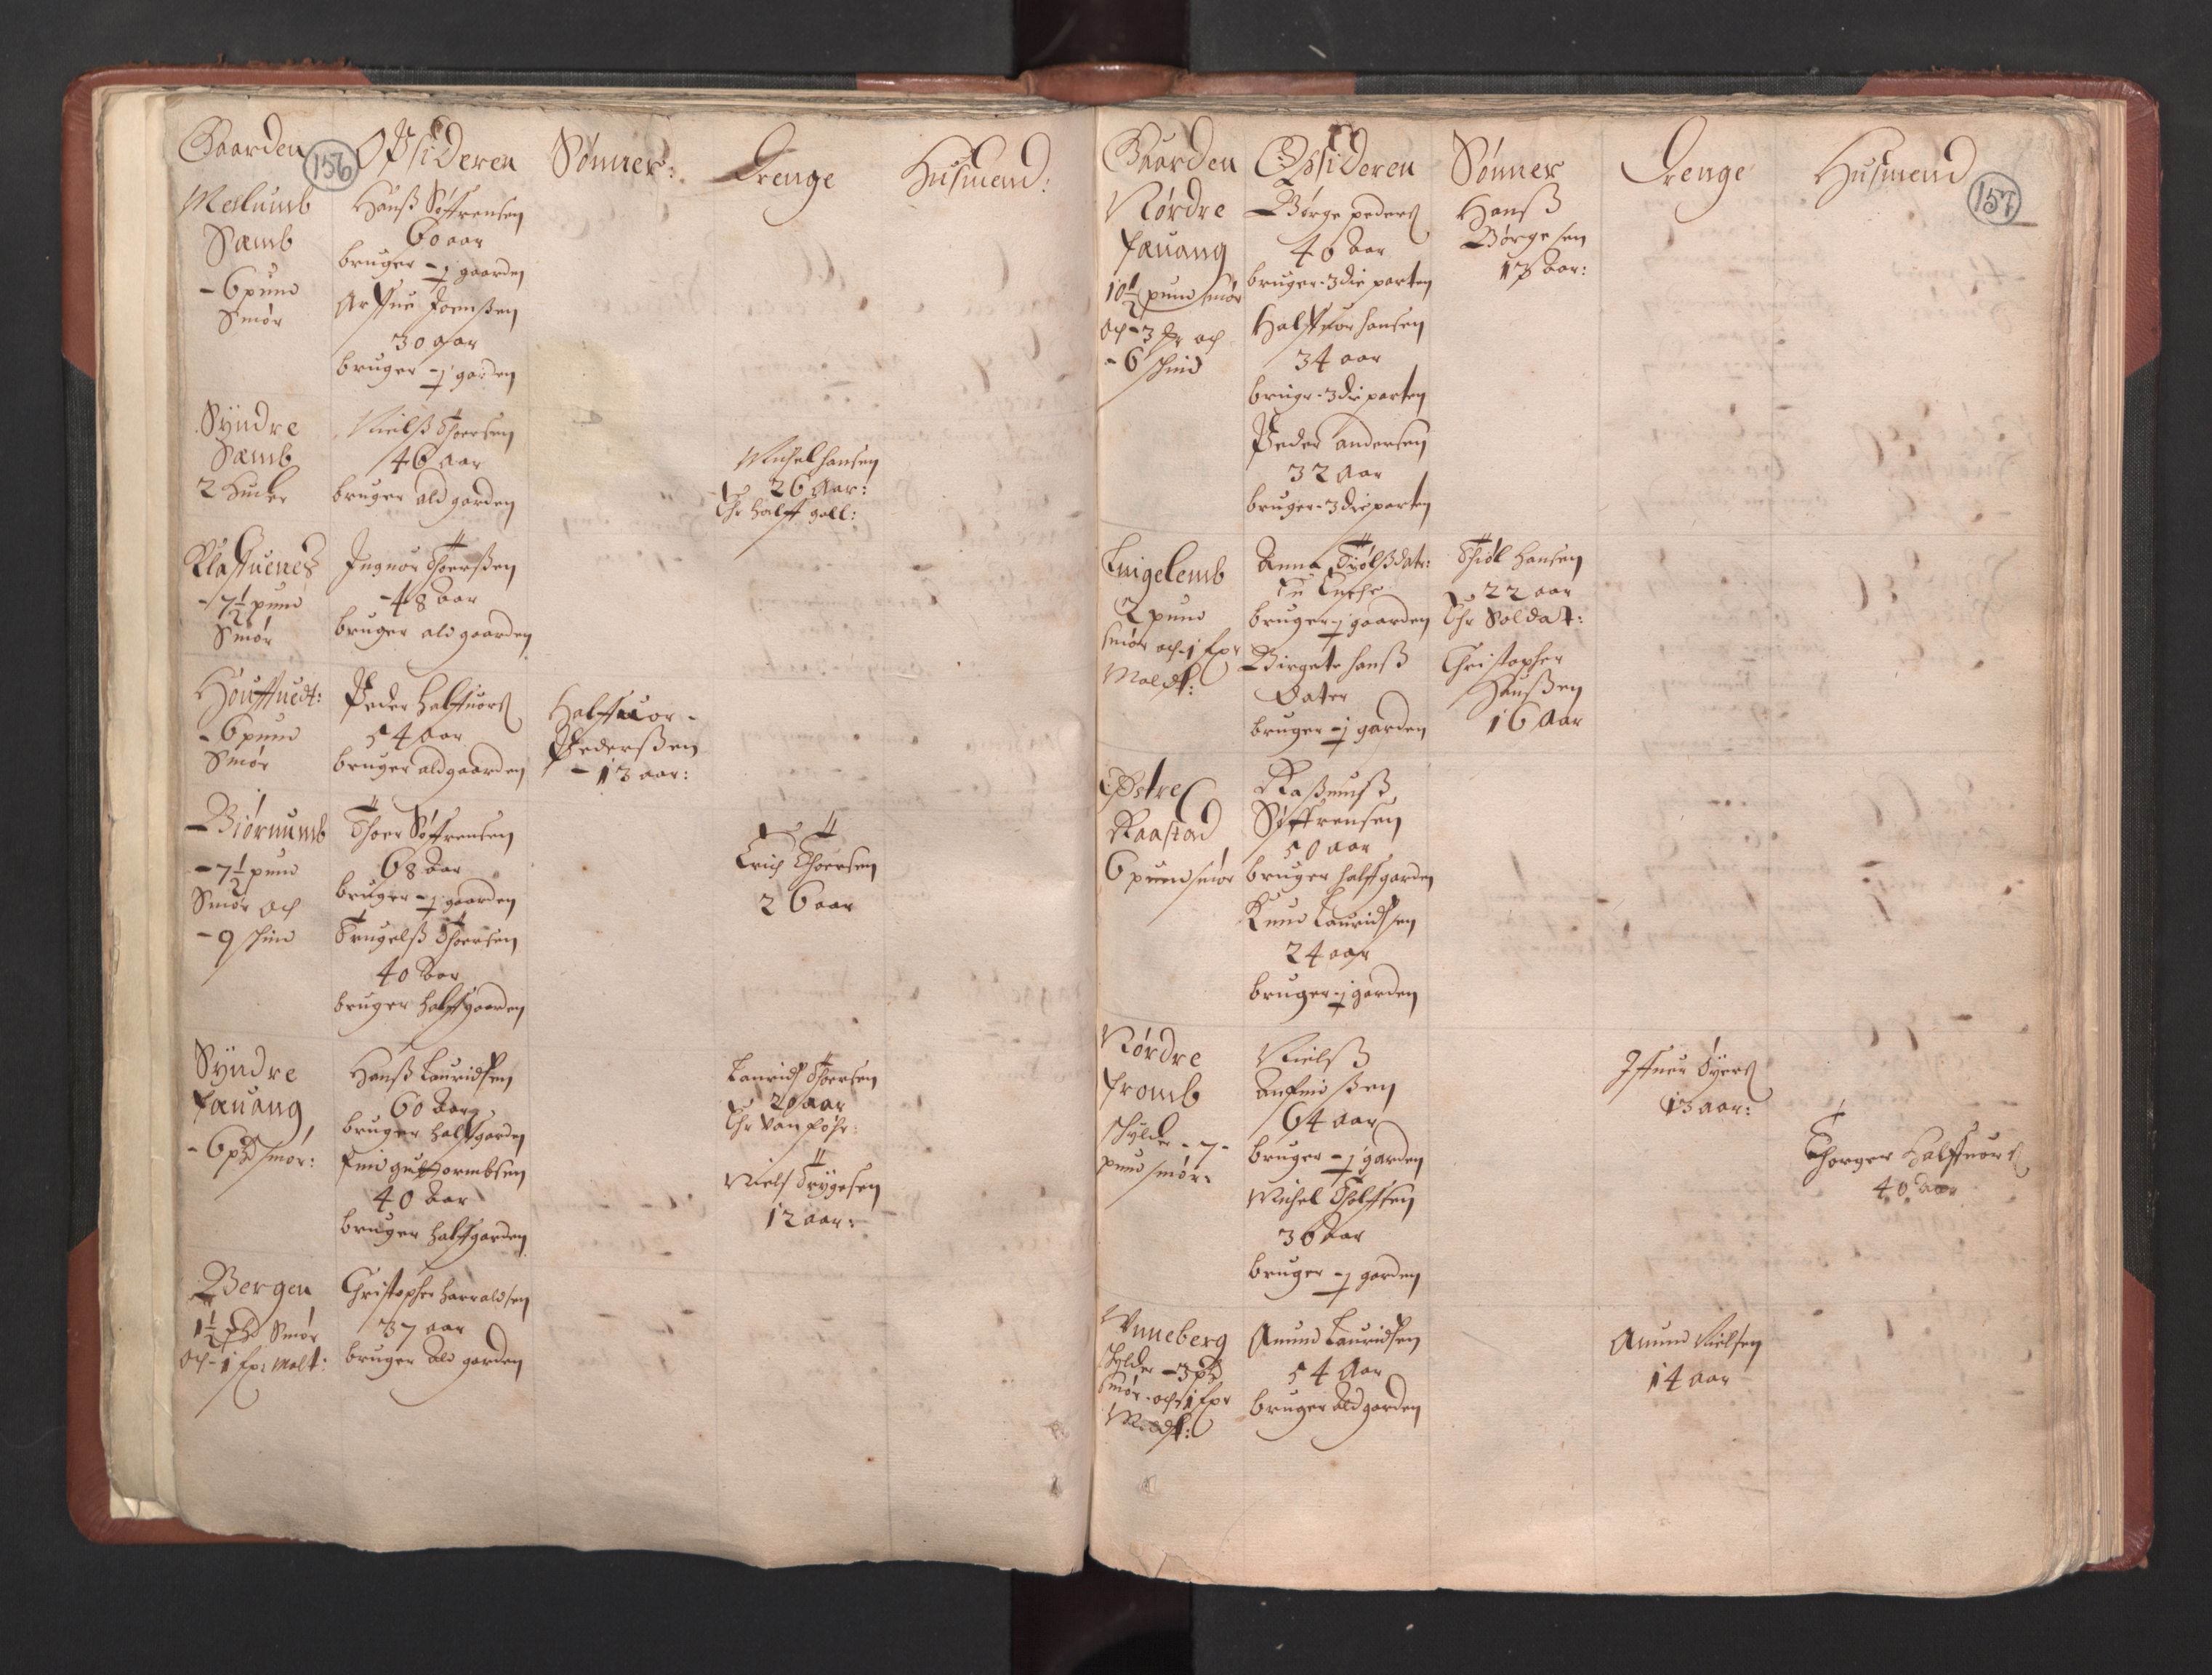 156
Gaarden Opsideren Sønner: Drenge Husmend:
Meslumb
Sæmb
- 6 pund
Smør
Hanß Søffrensen
60 aar
bruger - ½ gaarden
Arffue Joenßen
30 aar
bruger - ½ garden
Syndre
Sæmb
2 Huder
Nielß Thoersen
46 aar
bruger ald garden
Michel hansen
26 Aar:
Ehr halff gall:
Klaffuenes
- 7½ pund
Smør
Jnguor Thoerßen
- 48 aar
bruger ald gaarden
Houffuedt:
- 6 pund
Smør
Peder halffuors
54 aar
bruger ald gaarden
Halffuor -
Pederßen
- 13 aar:
Biørnumb
- 7½ pund
Smør och
- 9 schind
Thoer Søffrensen
68 aar
bruger - ½ gaarden
Trugelß Thoersen
40 aar
bruger halff gaarden
Erich Thoersen
26 aar
Syndre
fæuang
- 6 pd smør:
Hanß Lauridsen
60 aar
bruger halffgarden
find guttormbsen
40 aar
bruger halffgarden
Laurids Thoersen
20 aar
Ehr Vanføhr:
Niels Trygesen
12 aar:
Bergen
1½ pd Smør
och - 1 fpr Malt:
Christopher harraldsen
37 aar
bruger ald garden
157
Gaarden Opsideren Sønner Drenge Husmend
Nørdre
fæuang
10½ pund smør
och - 3 och
- 6 schind
Børge peders
40 aar
bruger - 3die parten
Halffuor hansen
34 aar
brugr - 3die parten
Peder andersen
32 aar
bruger - 3die parten
Hanß
Børgesen
13 aar:
Engelemb
2 pund
smør och - 1 fpr
Maldt:
Anna Tiølßdatr:
En Enche
bruger - ½ gaarden
Birgete hanß
Dater
bruger - ½ garden
Thiøl hansen
22 aar
Ehr Soldat:
Christopher
Hanßen
16 aar
Østre
Raastad
6 pund smør
Raßmuß
Søffrensen
50 aar
bruger halffgarden
Knud Lauridsen
24 aar
bruger - ½ garden
Nørdre
fromb
schylder - 7 -
pund smør:
Nielß
Anfindßen
64 aar
bruger - ½ garden
Michel Tholffsen
36 aar
bruger - ½ garden
Iffuer Syers
13 aar:
Thorger halffuors
40 aar
Unneberg
schylder - 3 pd
smør - och - 1 fpr
Maldt:
Amund Lauridsen
54 aar
bruger ald garden
Amund Nielsen
14 aar